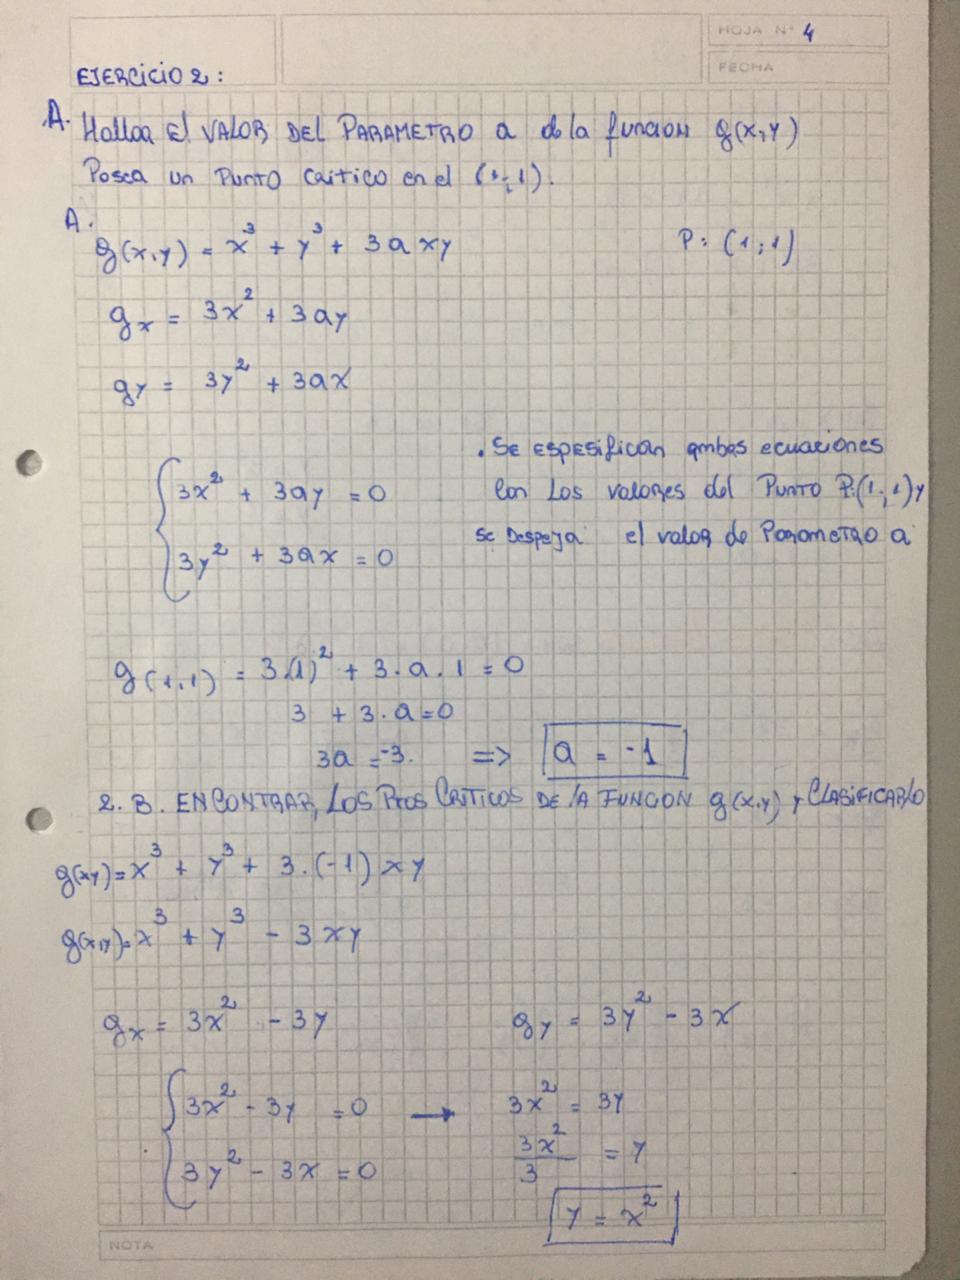 HOJA N° 4
FECHA
EJERCICIO 2:
A. Hallar El VALOR DEL PARAMETRO a de la funcion g(x,y)
Posea un Punto Critico en el (1;1).
A.
g(x,y) = x³ + y³ + 3axy P: (1;1)
gx = 3x² + 3ay
gy = 3y² + 3ax
. Se ESPESifican ambas ecuaciones
3x² + 3ay = 0 con Los valores del Punto P:(1;1) y
3y² + 3ax = 0 se Despeja el valor de Parametro a
g(1,1) = 3.(1)² + 3.a.1 = 0
3 + 3.a = 0
3a = -3. => a = -1
2. B. ENCONTRAR, LOS Ptos CRITICOS DE lA FUNCION g(x,y) y CLASIFICARlo
g(xy) = x³ + y³ + 3.(-1)xy
g(x,y) = x³ + y³ - 3xy
gx = 3x² - 3y gy = 3y² - 3x
3x² - 3y = 0 → 3x² = 3y
3x²/3 = y
3y² - 3x = 0
y = x²
NOTA